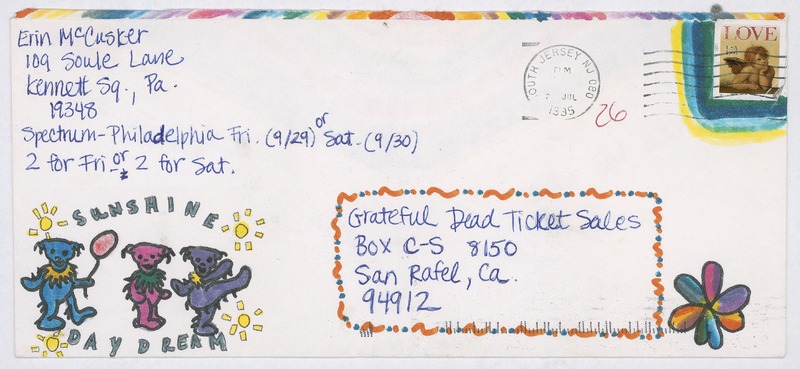 Erin McCusker
109 Soule Lane
Kennett Sq., Pa.
19348
Spectrum-Philadelphia Fri. (9/29) or Sat. (9/30)
2 for Fri or 2 for Sat.
SOUTH JERSEY NJ 080
PM
JUL
1995
26
LOVE
SUNSHINE
DAYDREAM
Grateful Dead Ticket Sales
Box C-S 8150
San Rafel, Ca.
94912